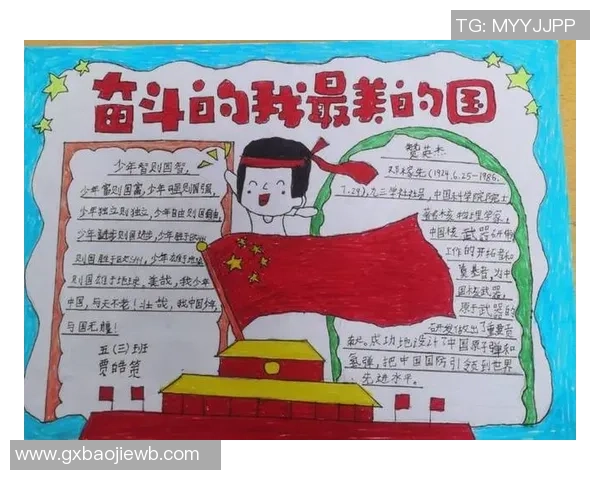 TG: MYYJJPP
奋斗的我最美的国
少年智则国智,
少年富则国富,少年强则国强,
少年独立则独立,少年自由则国自由,
少年进步则国进步,少年胜于欧洲
则国胜于欧洲,少年雄于地球
则国雄于地球,美哉,我少年
中国,与天不老!壮哉,我中国少年,
与国无疆!
五(三)班
贾皓
赞英杰
邓稼先(1924.6.25-1986.
7.29),九三学社社员,中国科学院院士,
著名核物理学家,
中国核武器研制
工作的开拓者和
奠基者,为中
国核武器,
原子武器的
研发做出了重要贡
献。成功地设计了中国原子弹和
氢弹,把中国国防引领到世界
先进水平。
www.gxbaojiewb.com